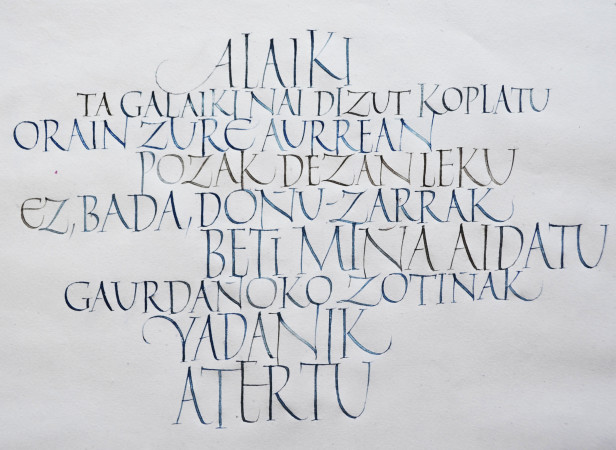 ALAIKI
TA GALAIKI NAI DIZUT KOPLATU
ORAIN ZURE AURREAN
POZAK DEZAN LEKU
EZ, BADA, DONU-ZARRAK
BETI MIÑA AIDATU
GAURDAÑOKO ZOTINAK
YADANIK
ATERTU